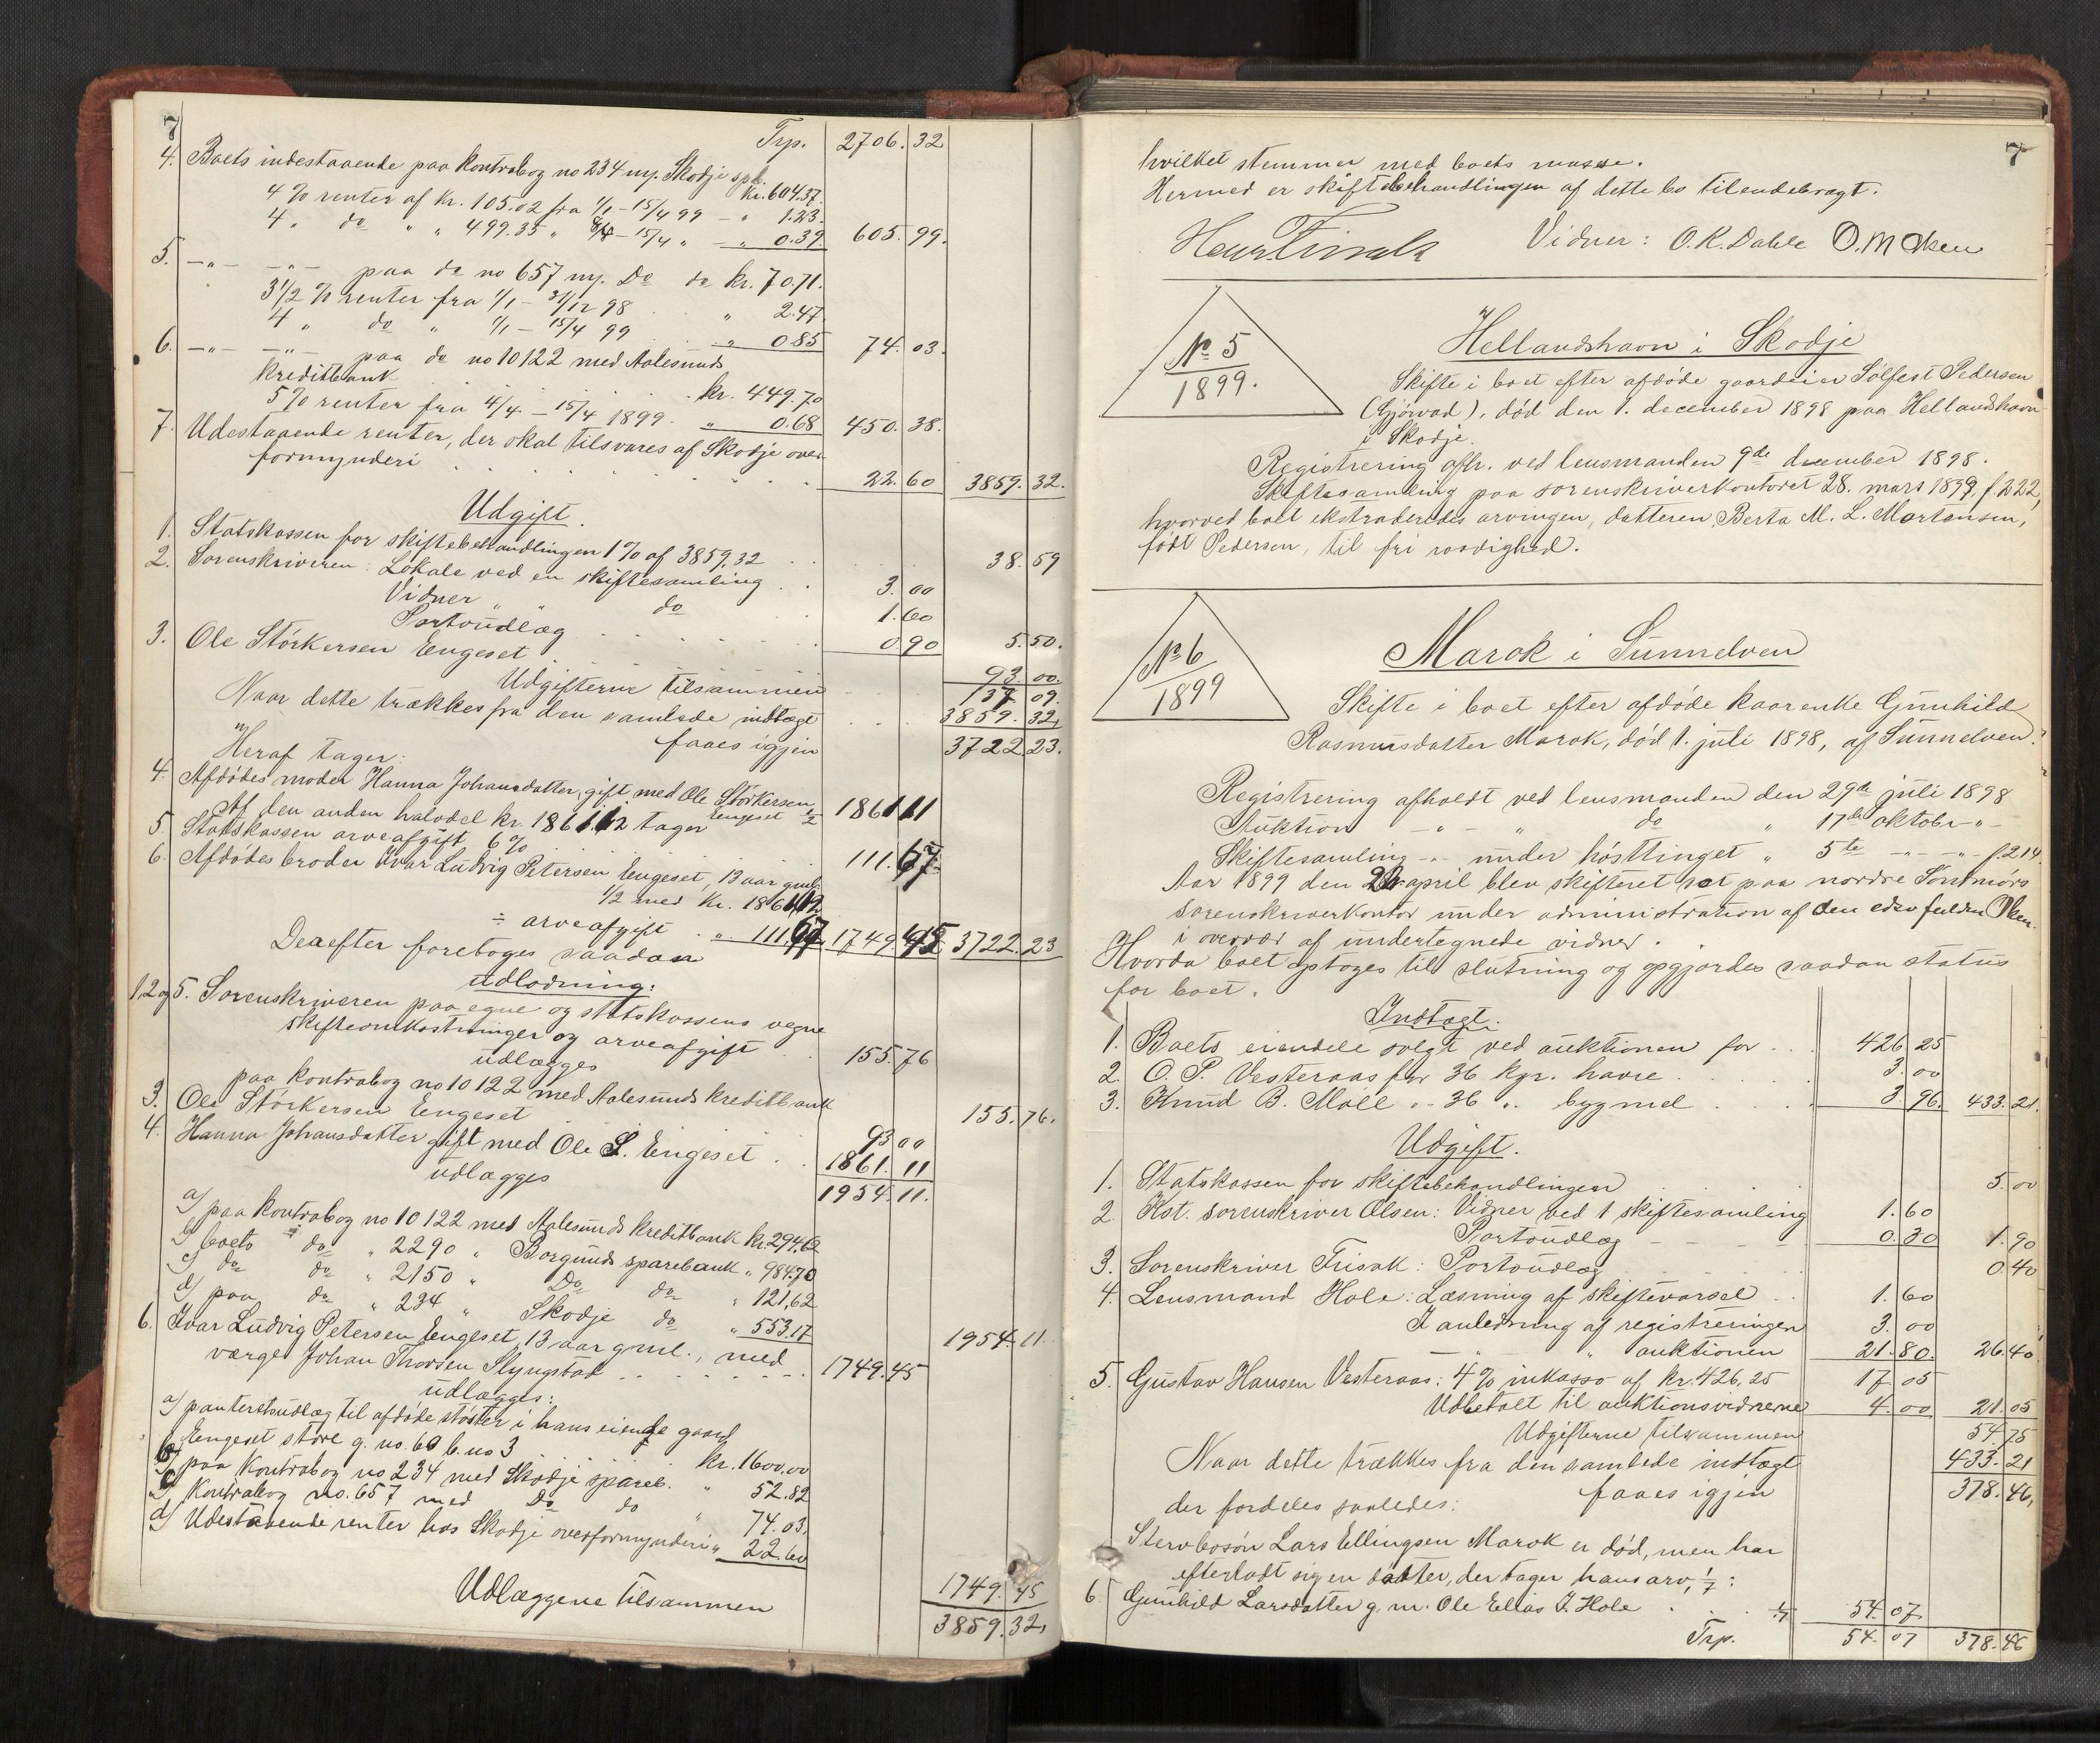 7
Trp. 2706.32
4. Boets indestaaende paa kontrabog no 234 m. Skodje spb. kr. 604.37.
4 % renter af kr. 105.02 fra 1/1 - 15/4 99 - " 1.23.
4 " do " " 499.35 " 8/4 - 15/4 " - " 0.39 605.99.
5. -"- -"- paa do no 657 m. Do do kr. 70.71.
3 1/2 % renter fra 1/1 - 31/12 98 " 2.47
4 " do " 1/1 - 15/4 99 " 0.85 74.03.
6. -"- -"- paa do no 10122 med Aalesunds
kreditbank kr. 449.70
5 % renter fra 4/4 - 15/4 1899 " 0.68 450.38.
7. Udestaaende renter, der skal tilsvares af Skodje over-
formynderi 22.60 3859.32.
Udgift.
1. Statskassen for skiftebehandlingen 1 % af 3859.32 38.59
2. Sorenskriveren: Lokale ved en skiftesamling 3.00
Vidner " " do 1.60
Portoudlæg 0.90 5.50.
3. Ole Störkersen Engeset 93.00.
Udgifterne tilsammen 137 09.
Naar dette trækkes fra den samlede indtægt 3859.32,
faaes igjen 3722.23.
Heraf tager:
4. Afdödes moder Hanna Johansdatter, gift med Ole Störkersen Engeset 1/2 1861 11
Af den anden halvdel kr. 1861.12 tager
5. Statskassen arveafgift 6 % 111.67.
6. Afdödes broder Ivar Ludvig Petersen Engeset, 13 aar gml.
1/2 med kr. 1861.12
÷ arveafgift " 111.67 1749 45 3722.23
Derefter foretoges saadan
udlodning:
1.2 og 5. Sorenskriveren paa egne og statskassens vegne
skifteomkostninger og arveafgift 155.76
udlægges
paa kontrabog no 10122 med Aalesunds kreditbank 155.76.
3. Ole Störkersen Engeset 93 00
4. Hanna Johansdatter gift med Ole S. Engeset 1861.11
udlægges 1954.11.
a) paa kontrabog no 10122 med Aalesunds kreditbank kr. 294.62
b) boets do " 2290 " Borgunds sparebank " 984.70
c) do do " 2150 " Do do " 121,62
d) paa do " 234 " Skodje do " 553.17 1954.11
6. Ivar Ludvig Petersen Engeset, 13 aar gml., med
værge Johan Thorsen Slyngstad 1749.45
udlægges:
a) panteretsudlæg til afdöde söster i hans eiende gaard
Engeset store g. no. 60 b. no 3 kr. 1600.00
b) paa kontrabog no 234 med Skodje spareb. " 52.82
c) kontrabog no. 657 med Do do " 74.03.
d) Udestaaende renter hos Skodje overformynderi " 22.60 1749.45
Udlæggene tilsammen 3859.32,
7
hvilket stemmer med boets masse.
Hermed er skiftebehandlingen af dette bo tilendebragt.
Vidner: O. K. Dahle O. M
No 5
1899.
Hellandshavn i Skodje
Skifte i boet efter afdöde gaardeier Sölfest Pedersen
(Gjörvad), död den 1. december 1898 paa Hellandshavn
i Skodje.
Registrering afh. ved lensmanden 9de december 1898.
Skiftesamling paa sorenskriverkontoret 28. mars 1899, f. 222,
hvorved boet ekstraderedes arvingen, datteren Berta M. L. Mortensen,
födt Pedersen, til fri raadighed.
No 6
1899
Marok i Sunnelven
Skifte i boet efter afdöde kaarenke Gunhild
Rasmusdatter Marok, död 1. juli 1898, af Sunnelven.
Registrering afholdt ved lensmanden den 29de juli 1898
Auktion -"- " do " 17de oktober "-
Skiftesamling -"- under hösttinget " 5te -"- -"- f. 214.
Aar 1899 den april blev skifteret sat paa nordre Söndmörs
sorenskriverkontor under administration af den
i overvær af undertegnede vidner.
Hvorda boet optoges til slutning og opgjordes saadan status
for boet.
Indtægt.
1. Boets eiendele solgt ved auktionen for 426 25
2. O. P. Vesteraas for 36 kgr. havre 3.00
3. Knud B. Möll " 36 " bygmel 3 96. 433.21.
Udgift.
1. Statskassen for skiftebehandlingen 5.00
2. Kst. sorenskriver Olsen: Vidner ved 1 skiftesamling 1.60
Portoudlæg 0.30 1.90
3. Sorenskriver Frisak: Portoudlæg 0.40
4. Lensmand Hole: Læsning af skiftevarsel 1.60
I anledning af registreringen 3.00
-"- " auktionen 21.80. 26.40
5. Gustav Hansen Vesteraas: 4 % inkasso af kr. 426.25 17 05
Udbetalt til auktionsvidnerne 4.00 21.05
Udgifterne tilsammen 54 75
Naar dette trækkes fra den samlede indtægt 433.21
faaes igjen 378.46,
der fordeles saaledes:
Stervbosön Lars Ellingsen Marok er död, men har
efterladt sig en datter, der tager hans arv, 1/7:
6 Gunhild Larsdatter g. m. Ole Elias I. Hole 1/7 54.07
Trp. 54.07 378.46